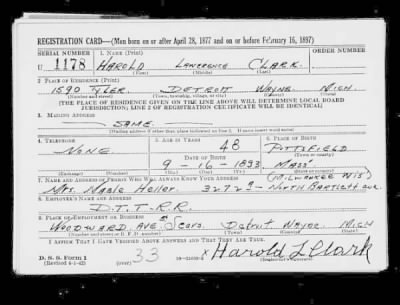 REGISTRATION CARD—(Men born on or after April 28, 1877 and on or before February 16, 1897)
SERIAL NUMBER 1. NAME (Print) ORDER NUMBER
U 1178 HAROLD LAWRENCE CLARK.
(First) (Middle) (Last)
2. PLACE OF RESIDENCE (Print)
1590 TYLER. DETROIT WAYNE. MICH.
(Number and street) (Town, township, village, or city) (County) (State)
[THE PLACE OF RESIDENCE GIVEN ON THE LINE ABOVE WILL DETERMINE LOCAL BOARD
JURISDICTION; LINE 2 OF REGISTRATION CERTIFICATE WILL BE IDENTICAL]
3. MAILING ADDRESS
SAME.
[Mailing address if other than place indicated on line 2. If same insert word same]
4. TELEPHONE 5. AGE IN YEARS 6. PLACE OF BIRTH
NONE. 48 PITTSFIELD
DATE OF BIRTH (Town or county)
9-16-1893 MASS.
(Mo.) (Day) (Yr.) (State or country)
7. NAME AND ADDRESS OF PERSON WHO WILL ALWAYS KNOW YOUR ADDRESS (MILWAUKEE WIS)
Mrs. Mable Heller. 3272 NORTH BARTLETT AVE.
8. EMPLOYER'S NAME AND ADDRESS
D.T.T.R.R.
9. PLACE OF EMPLOYMENT OR BUSINESS
WOODWARD AVE. Sears. Detroit Wayne. MICH
(Number and street or R. F. D. number) (Town) (County) (State)
I AFFIRM THAT I HAVE VERIFIED ABOVE ANSWERS AND THAT THEY ARE TRUE.
D. S. S. Form 1
(Revised 4-1-42) (over) 33 X Harold L Clark
(Registrant's signature)